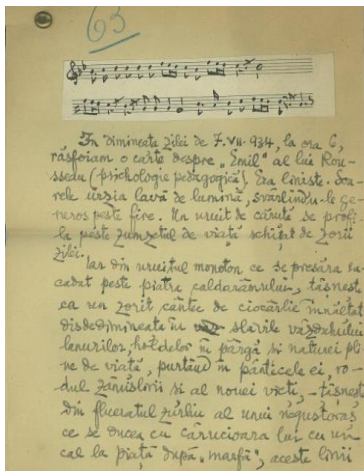 63
In dimineața zilei de 7.VII.934, la ora 6,
răsfoiam o carte despre „Emil" al lui Rou-
sseau (psichologie pedagogică). Era liniste. Soa-
rele urzia lavă de lumină, svârlindu-le ge-
neros peste fire. Un uruit de căruță se profi-
la peste zumzetul de viață schițat de zorii
zilei.
Iar din uruitul monoton ce se presăra ca-
dat peste piatra caldarâmului, tâșnește
ca un zorit cântec de ciocârlie înălțat
disdedimineață în slăvile văzduhului
lanurilor, holdelor în pârgă și naturei pli-
ne de viață, purtând în pânticele ei, ro-
dul zămislirii și al nouei vieți, - tâșnește
din flueratul zurliu al unui negustoraș
ce se ducea cu cărucioara lui cu un
cal la piață după „marfă", aceste linii